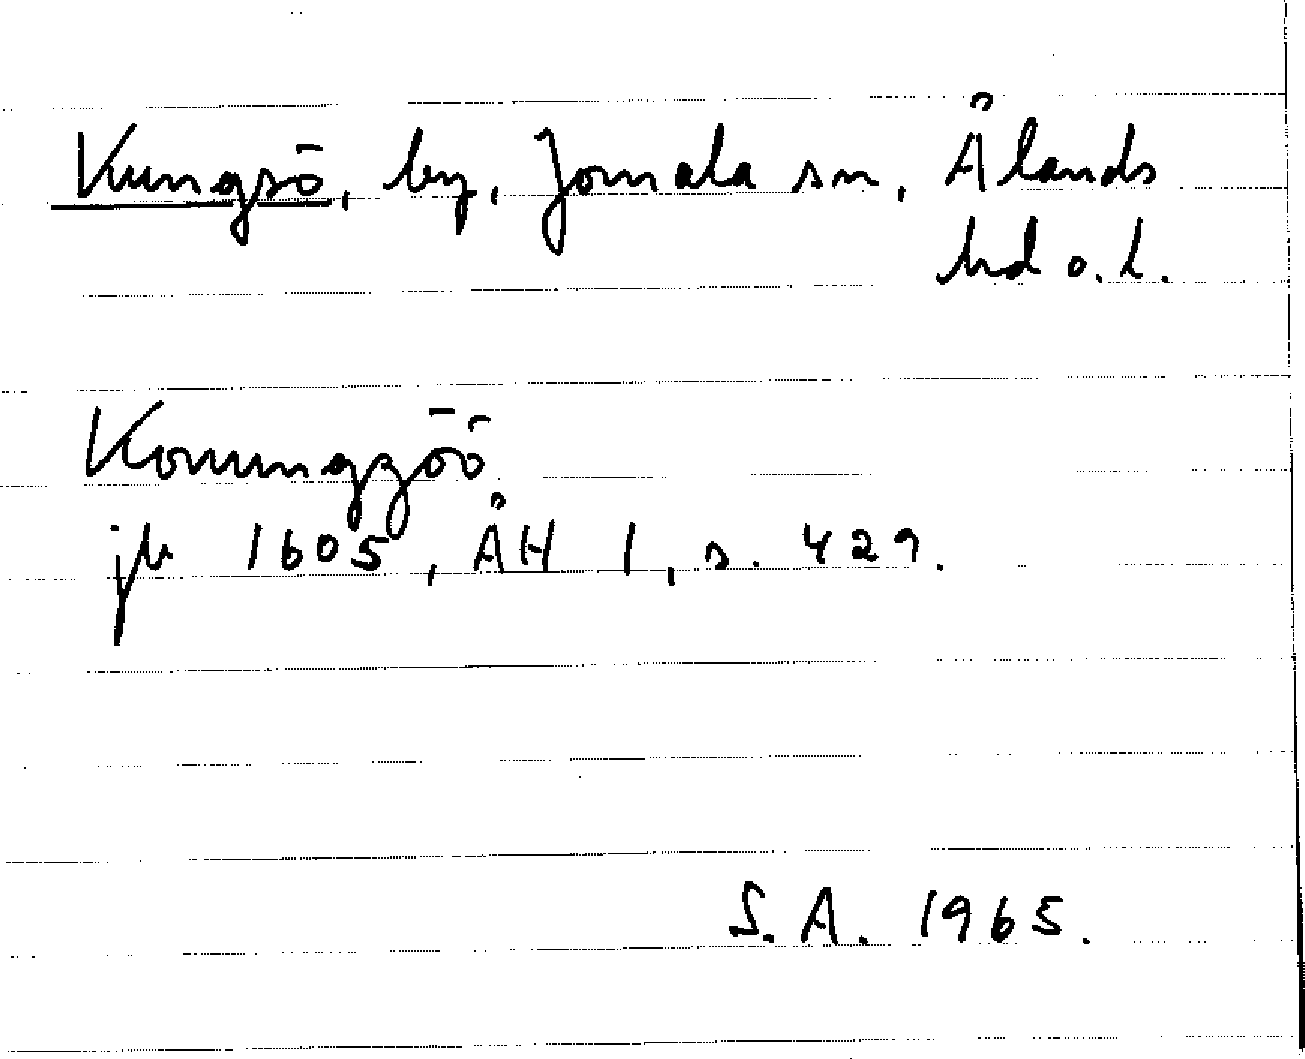 Kungsö, by, Jomala sn, Ålands
hd o. l.
Konungzöö
jb 1605, ÅH 1, s. 429.
S.A. 1965.